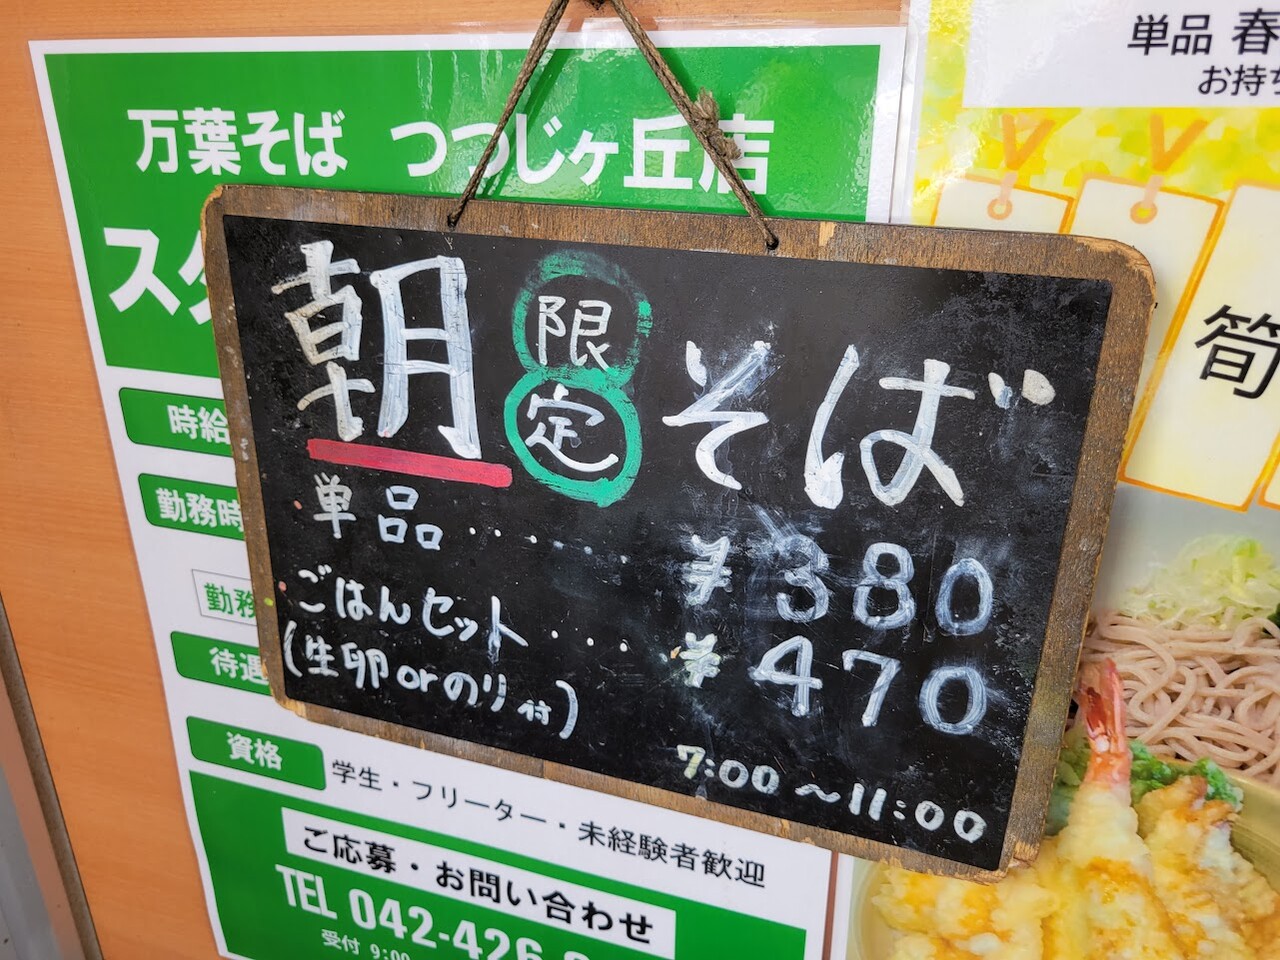 万葉そば つつじヶ丘店
朝限定そば
単品‥‥‥ ¥380
ごはんセット‥‥ ¥470
(生卵orのり付)
7:00～11:00
時給
勤務時
勤務
待遇
資格
学生・フリーター・未経験者歓迎
ご応募・お問い合わせ
TEL 042-426
受付 9:00
単品 春
お持ち
筍